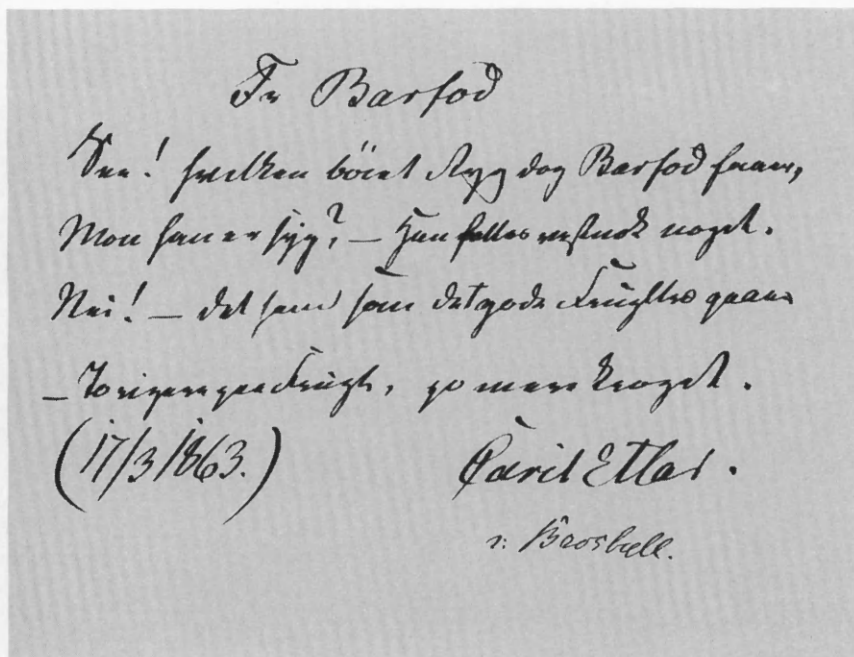 Fr Barfod
See! hvilken böiet Ryg dog Barfod faaer,
Mon han er syg? — Ham fattes vistnok noget.
Nei! — det ham som det gode Frugttræ gaaer
— Jo rigere paa Frugt, jo mere kroget.
(17/3 1863.) Carit Etlar.
ɔ: Brosbøll.